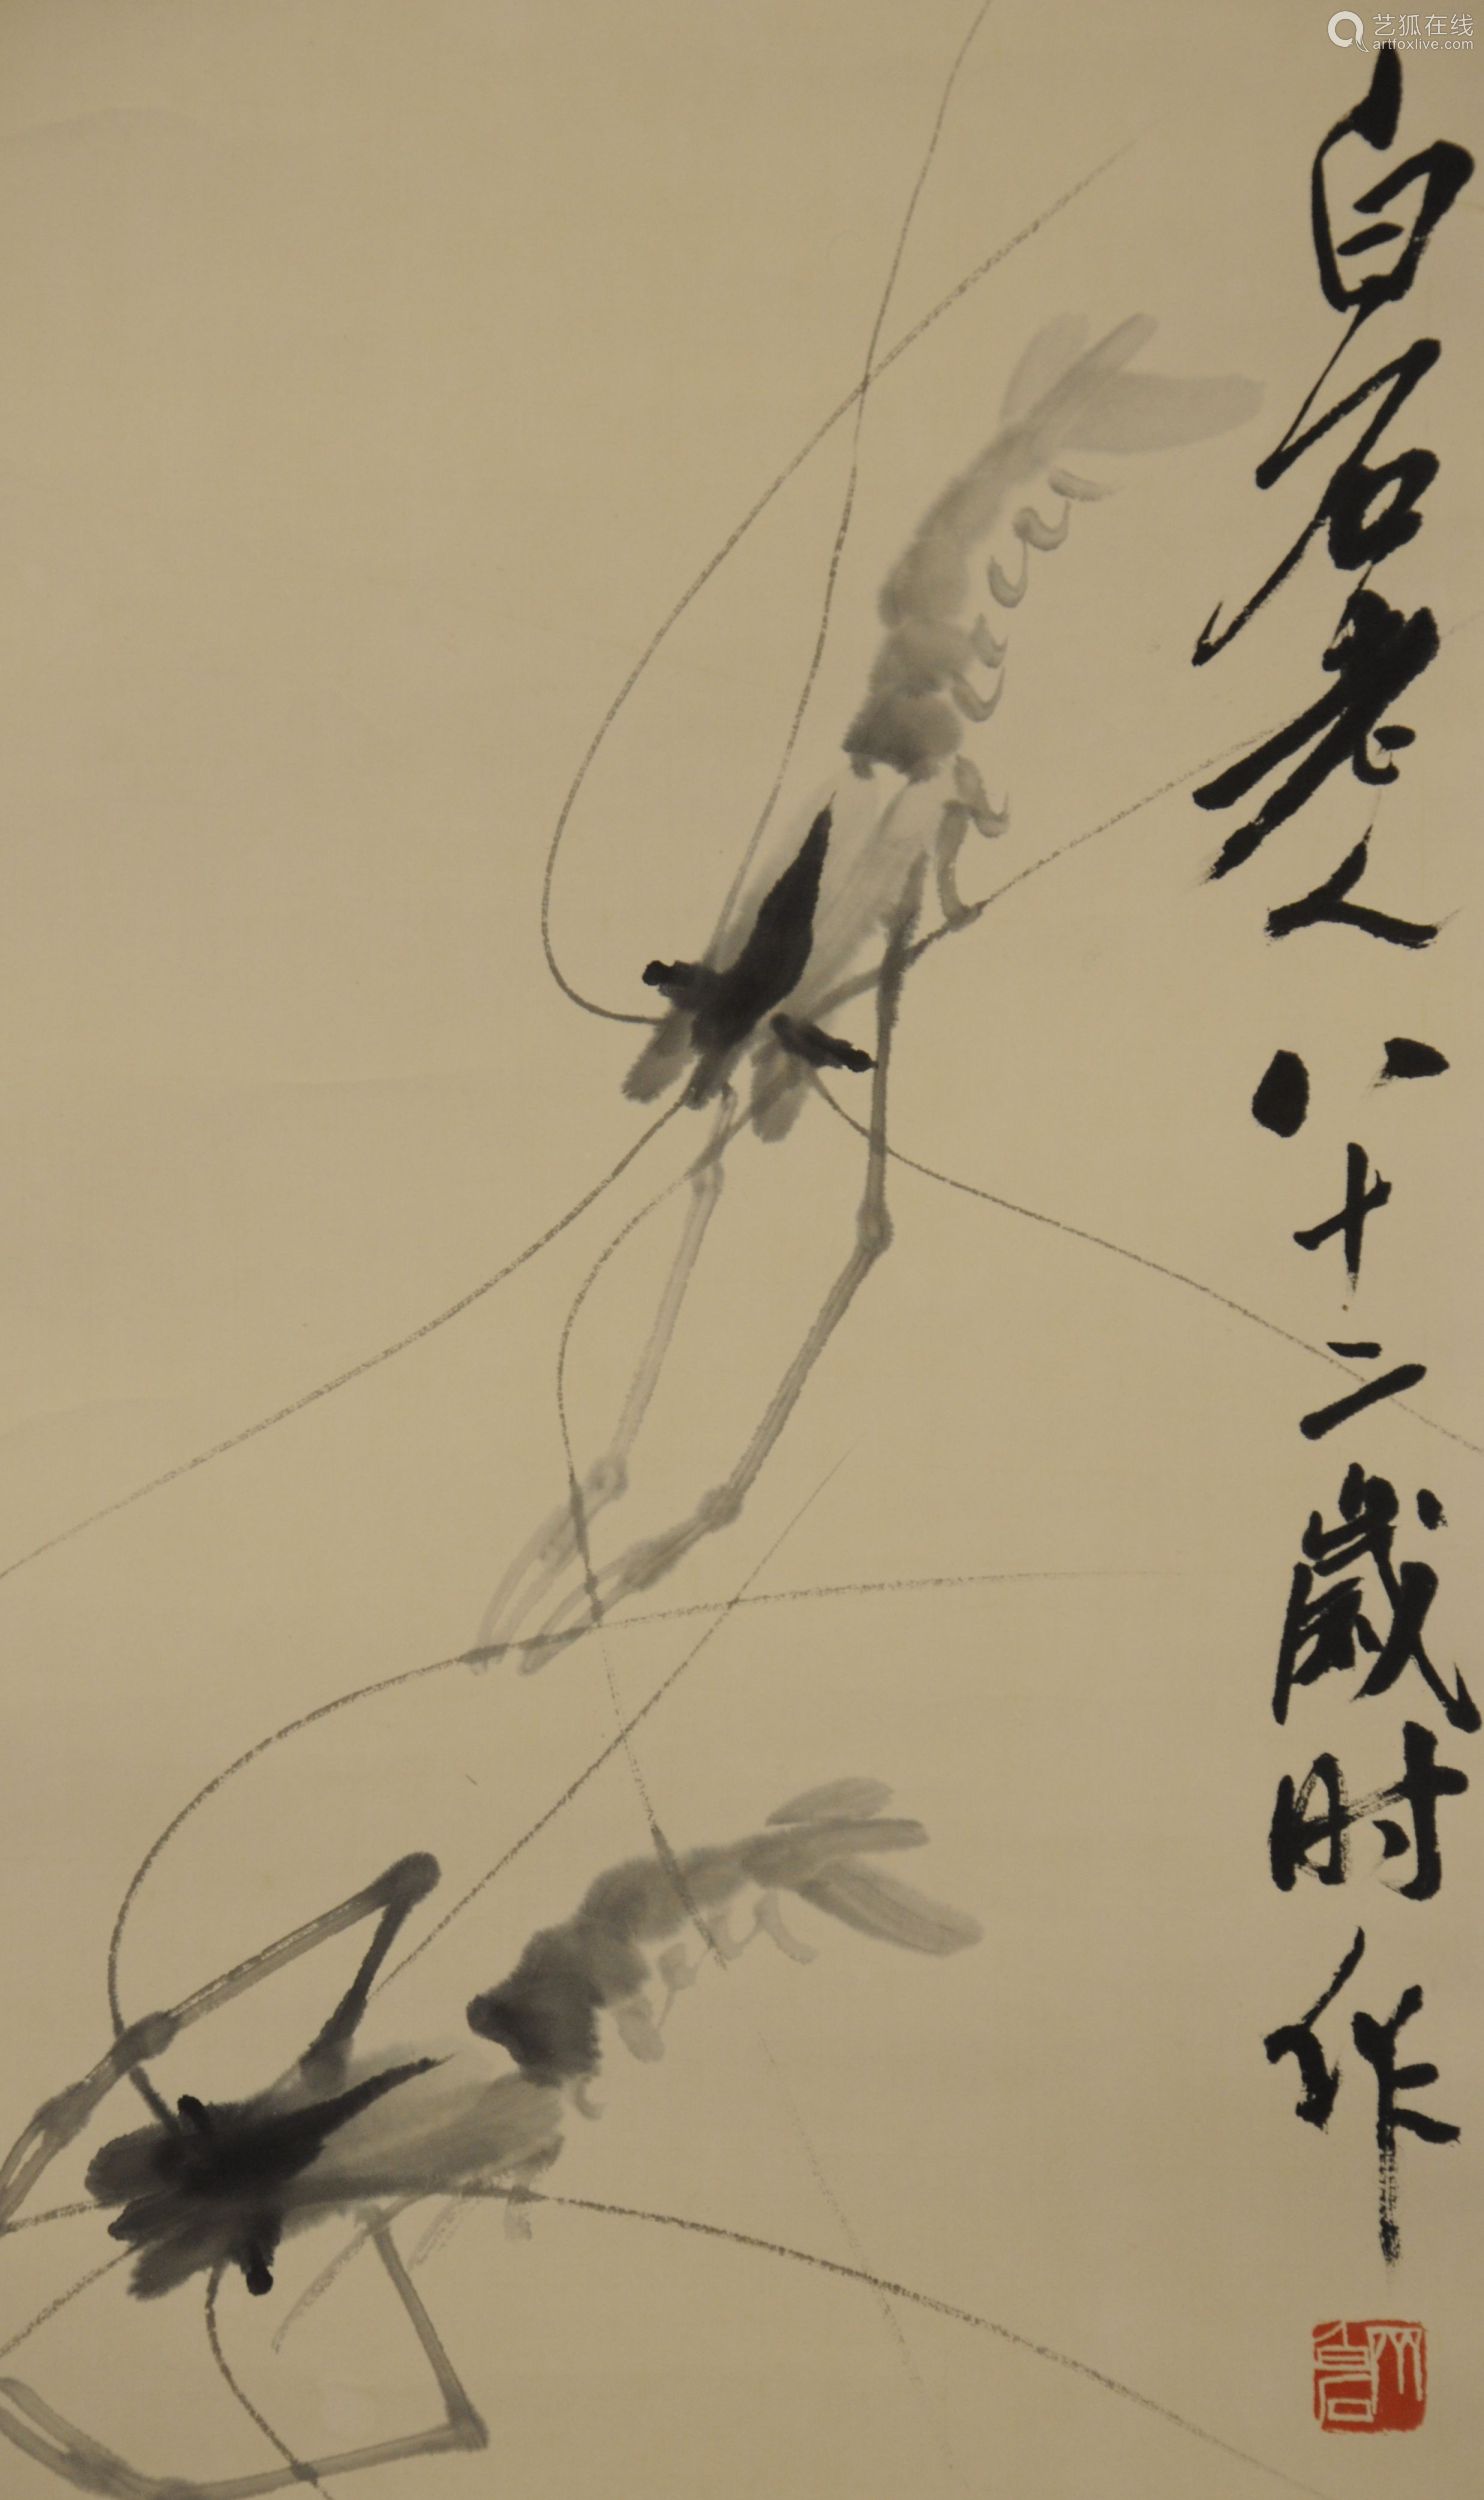 艺狐在线
artfoxlive.com
白石老人八十二歲时作